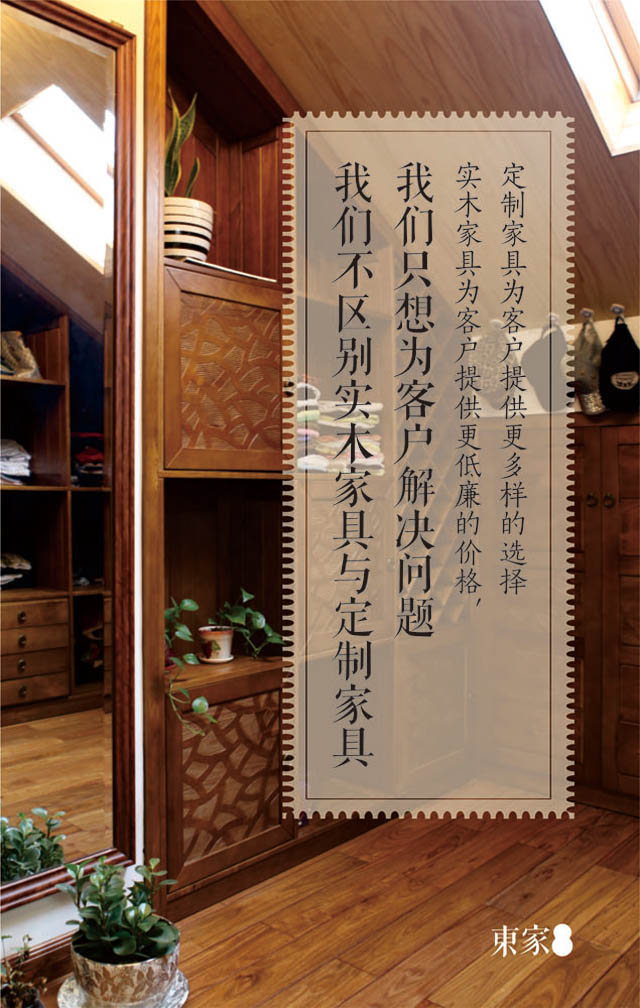 我们不区别实木家具与定制家具
我们只想为客户解决问题
实木家具为客户提供更低廉的价格，
定制家具为客户提供更多样的选择
東家8